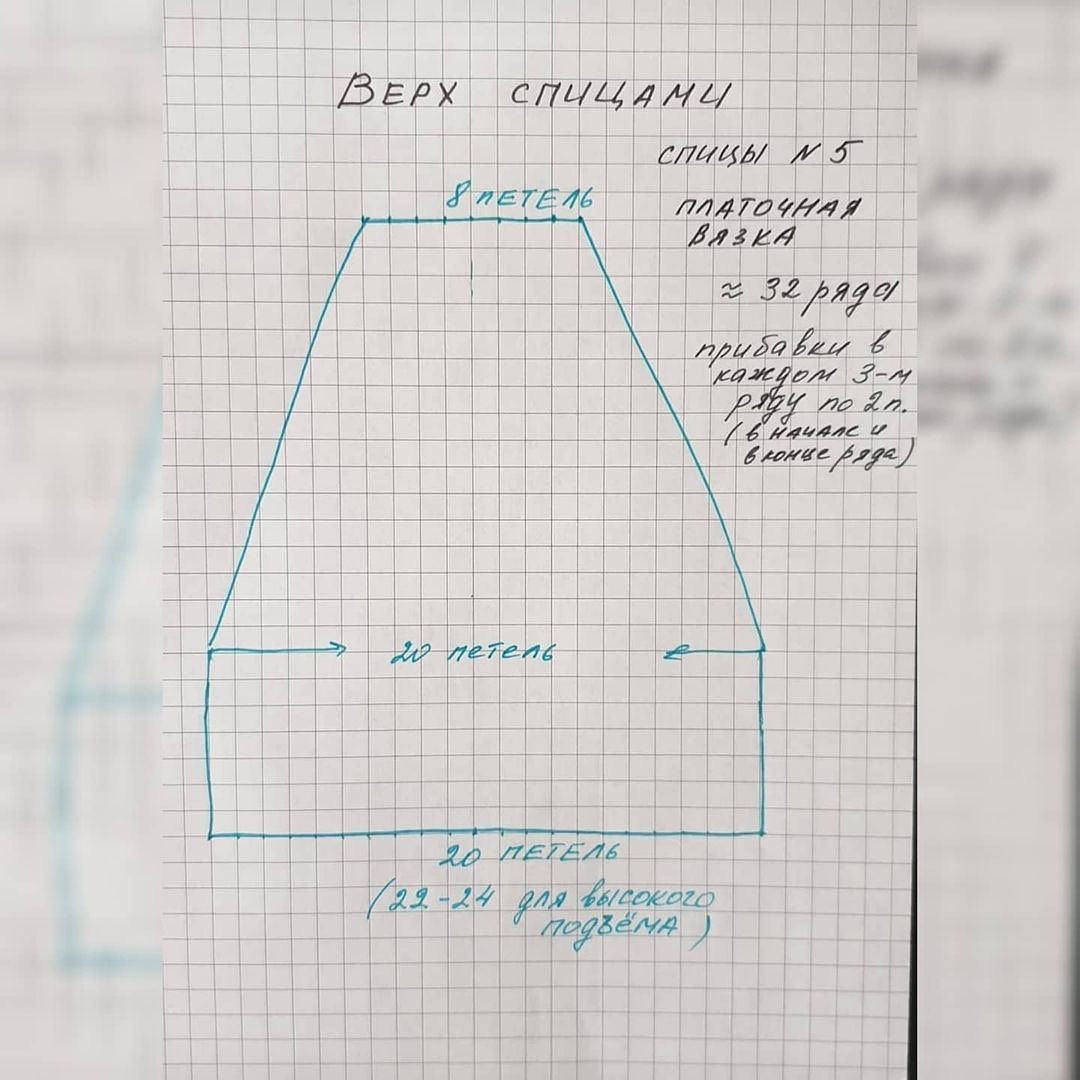 ВЕРХ СПИЦАМИ
СПИЦЫ N 5
8 ПЕТЕЛЬ
ПЛАТОЧНАЯ
ВЯЗКА
≈ 32 ряда
прибавки в
каждом 3-м
ряду по 2п.
(в начале и
в конце ряда)
20 петель
20 ПЕТЕЛЬ
(22-24 для высокого
подъёма)